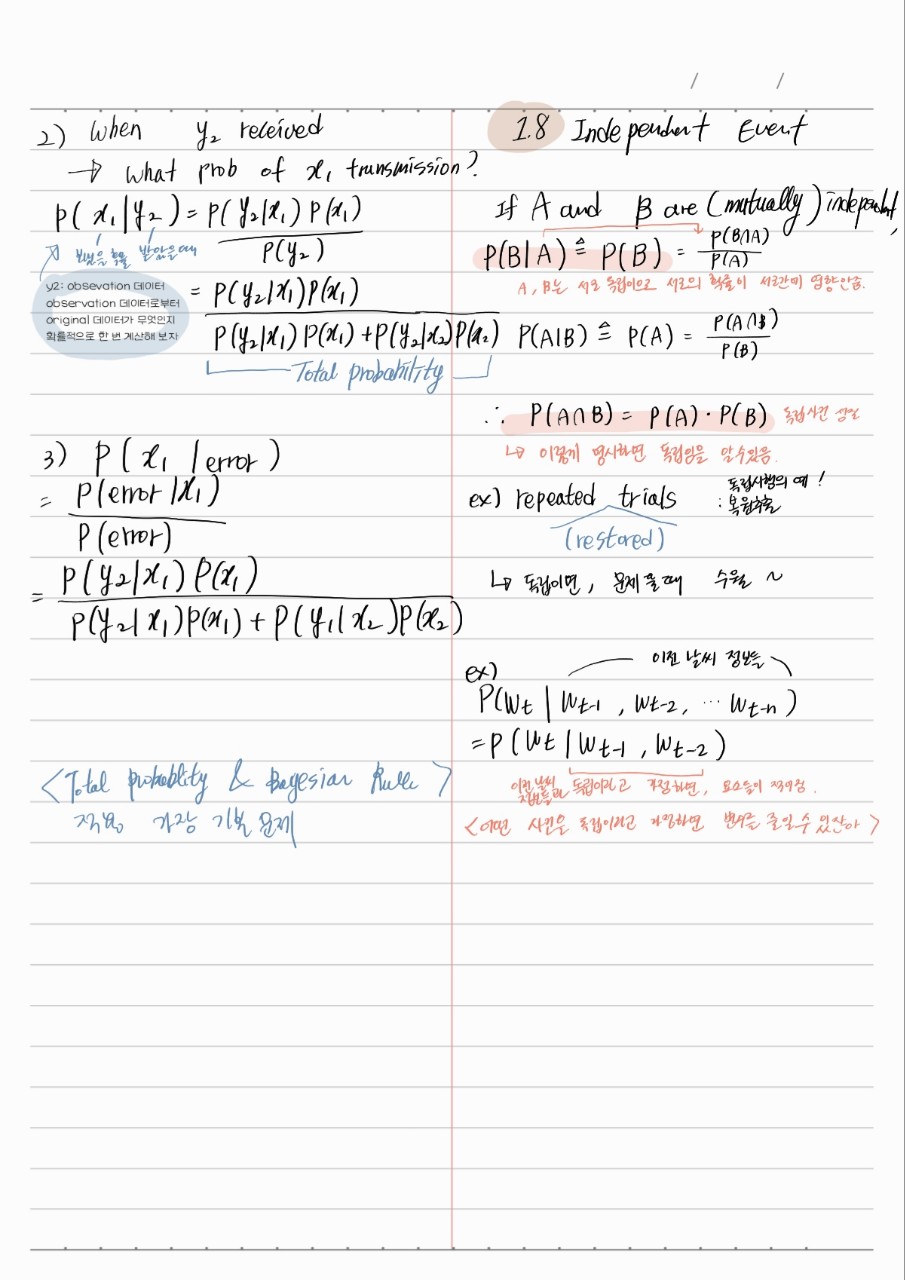 2) When y₂ received
→ What prob of x₁ transmission?
P(x₁|y₂) = P(y₂|x₁) P(x₁)
P(y₂)
보냈을 확률 받았을 때
y2: obsevation 데이터
observation 데이터로부터
original 데이터가 무엇인지
확률적으로 한 번 계산해 보자
= P(y₂|x₁)P(x₁)
P(y₂|x₁) P(x₁) + P(y₂|x₂)P(x₂)
Total probability
3) P(x₁ | error)
= P(error | x₁)
P(error)
= P(y₂|x₁) P(x₁)
P(y₂|x₁)P(x₁) + P(y₁|x₂)P(x₂)
<Total probablity & Bayesian Rule>
적용 가장 기본 문제
1.8 Independent Event
If A and B are (mutually) independent,
P(B|A) ≜ P(B) = P(B∩A)
P(A)
A, B는 서로 독립이므로 서로의 확률이 서로간에 영향 안줌.
P(A|B) ≜ P(A) = P(A∩B)
P(B)
∴ P(A∩B) = P(A)·P(B) 독립사건
↳ 이렇게 명시하면 독립임을 알 수 있음.
ex) repeated trials
독립시행의 예!
: 복원추출
(restored)
↳ 독립이면, 문제 풀 때 수월~
ex) 이전 날씨 정보들
P(Wt | Wt-1, Wt-2, ⋯ Wt-n)
= P(Wt | Wt-1, Wt-2)
이전 날씨 정보들과 독립이라고 가정하면, 요소들이 적어짐.
<어떤 사건을 독립이라고 가정하면 변수를 줄일 수 있잖아>